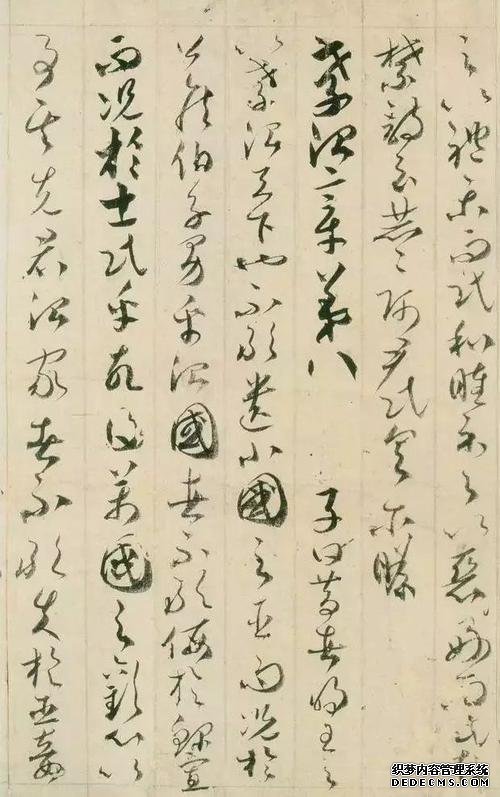 之以禮樂而民和睦示之以惡好而民知
禁詩云赫々師尹民具尒瞻
孝治章第八 子曰昔者明王之
以孝治天下也不敢遺小國之臣而況於
公侯伯子男乎治國者不敢侮於鰥寡
而況於士民乎故得萬國之歡心以
事其先君治家者不敢失於臣妾
织梦内容管理系统
DEDECMS.COM